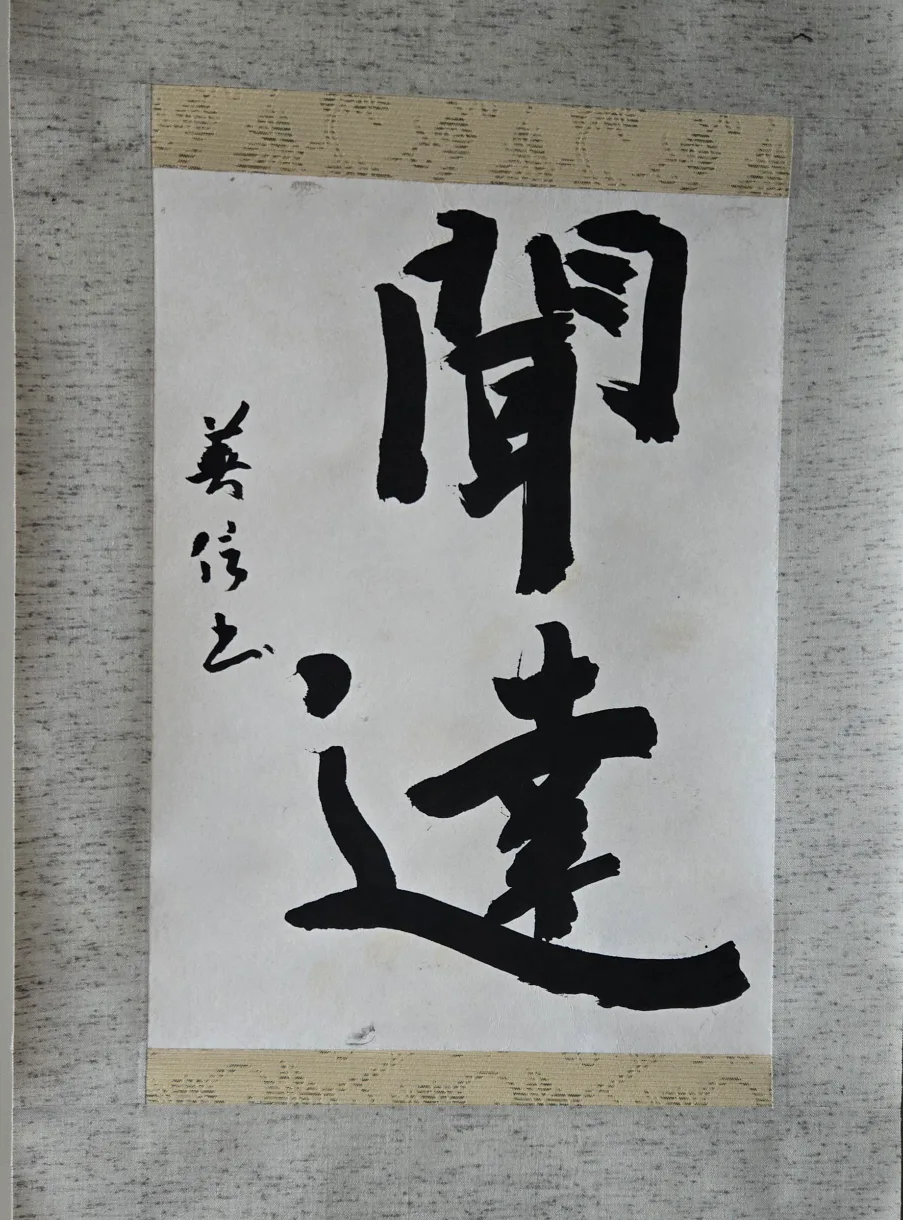 聞達
英信書